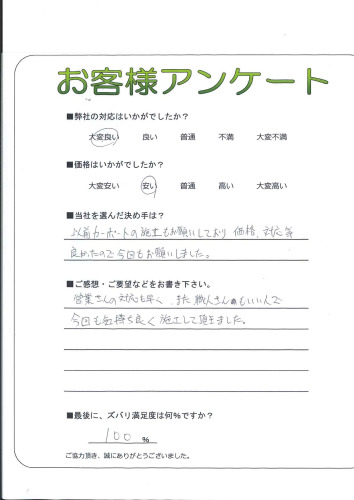 お客様アンケート
■弊社の対応はいかがでしたか?
大変良い 良い 普通 不満 大変不満
■価格はいかがでしたか?
大変安い 安い 普通 高い 大変高い
■当社を選んだ決め手は?
以前カーポートの施工もお願いしており 価格、対応等
良かったので今回もお願いしました。
■ご感想・ご要望などをお書き下さい。
営業さんの対応も早く、また 職人さんもいい人で
今回も気持ち良く施工して頂きました。
■最後に、ズバリ満足度は何%ですか?
100 %
ご協力頂き、誠にありがとうございました。